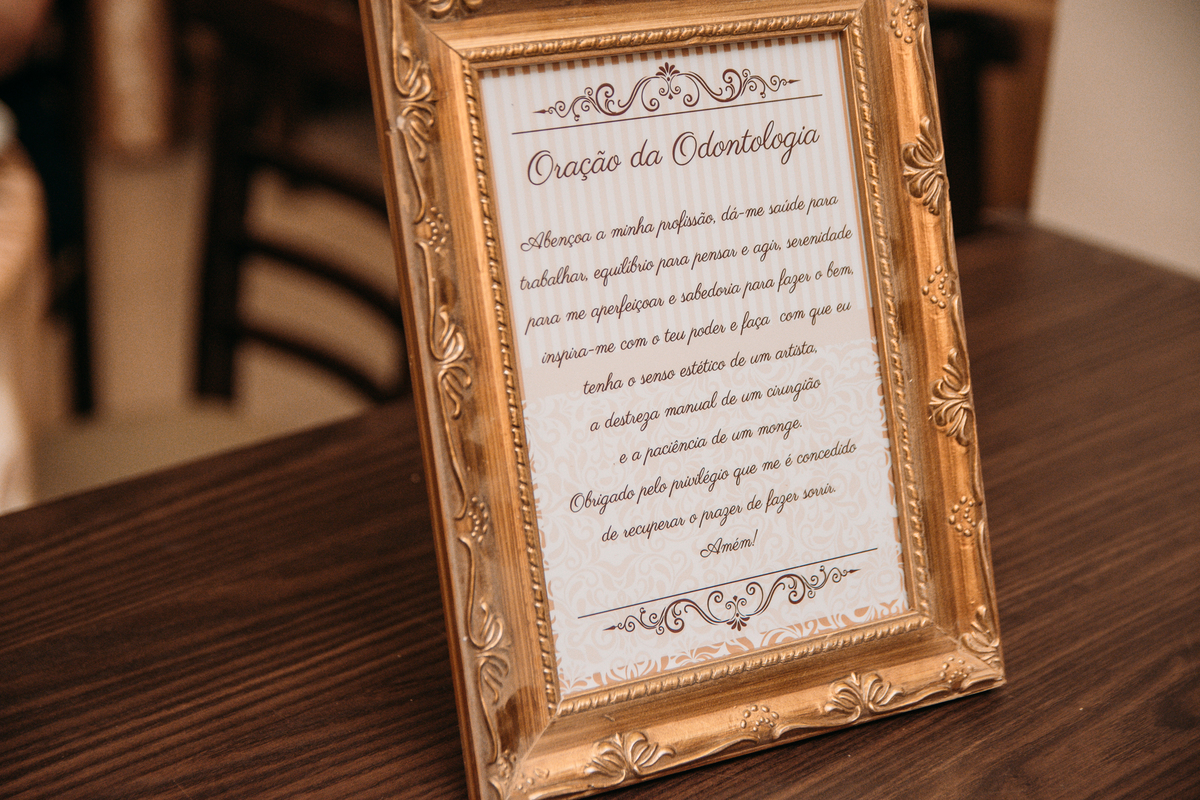 Oração da Odontologia
Abençoa a minha profissão, dá-me saúde para
trabalhar, equilíbrio para pensar e agir, serenidade
para me aperfeiçoar e sabedoria para fazer o bem,
inspira-me com o teu poder e faça com que eu
tenha o senso estético de um artista,
a destreza manual de um cirurgião
e a paciência de um monge.
Obrigado pelo privilégio que me é concedido
de recuperar o prazer de fazer sorrir.
Amém!